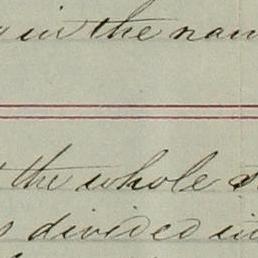 in the nam
the whole
divided in